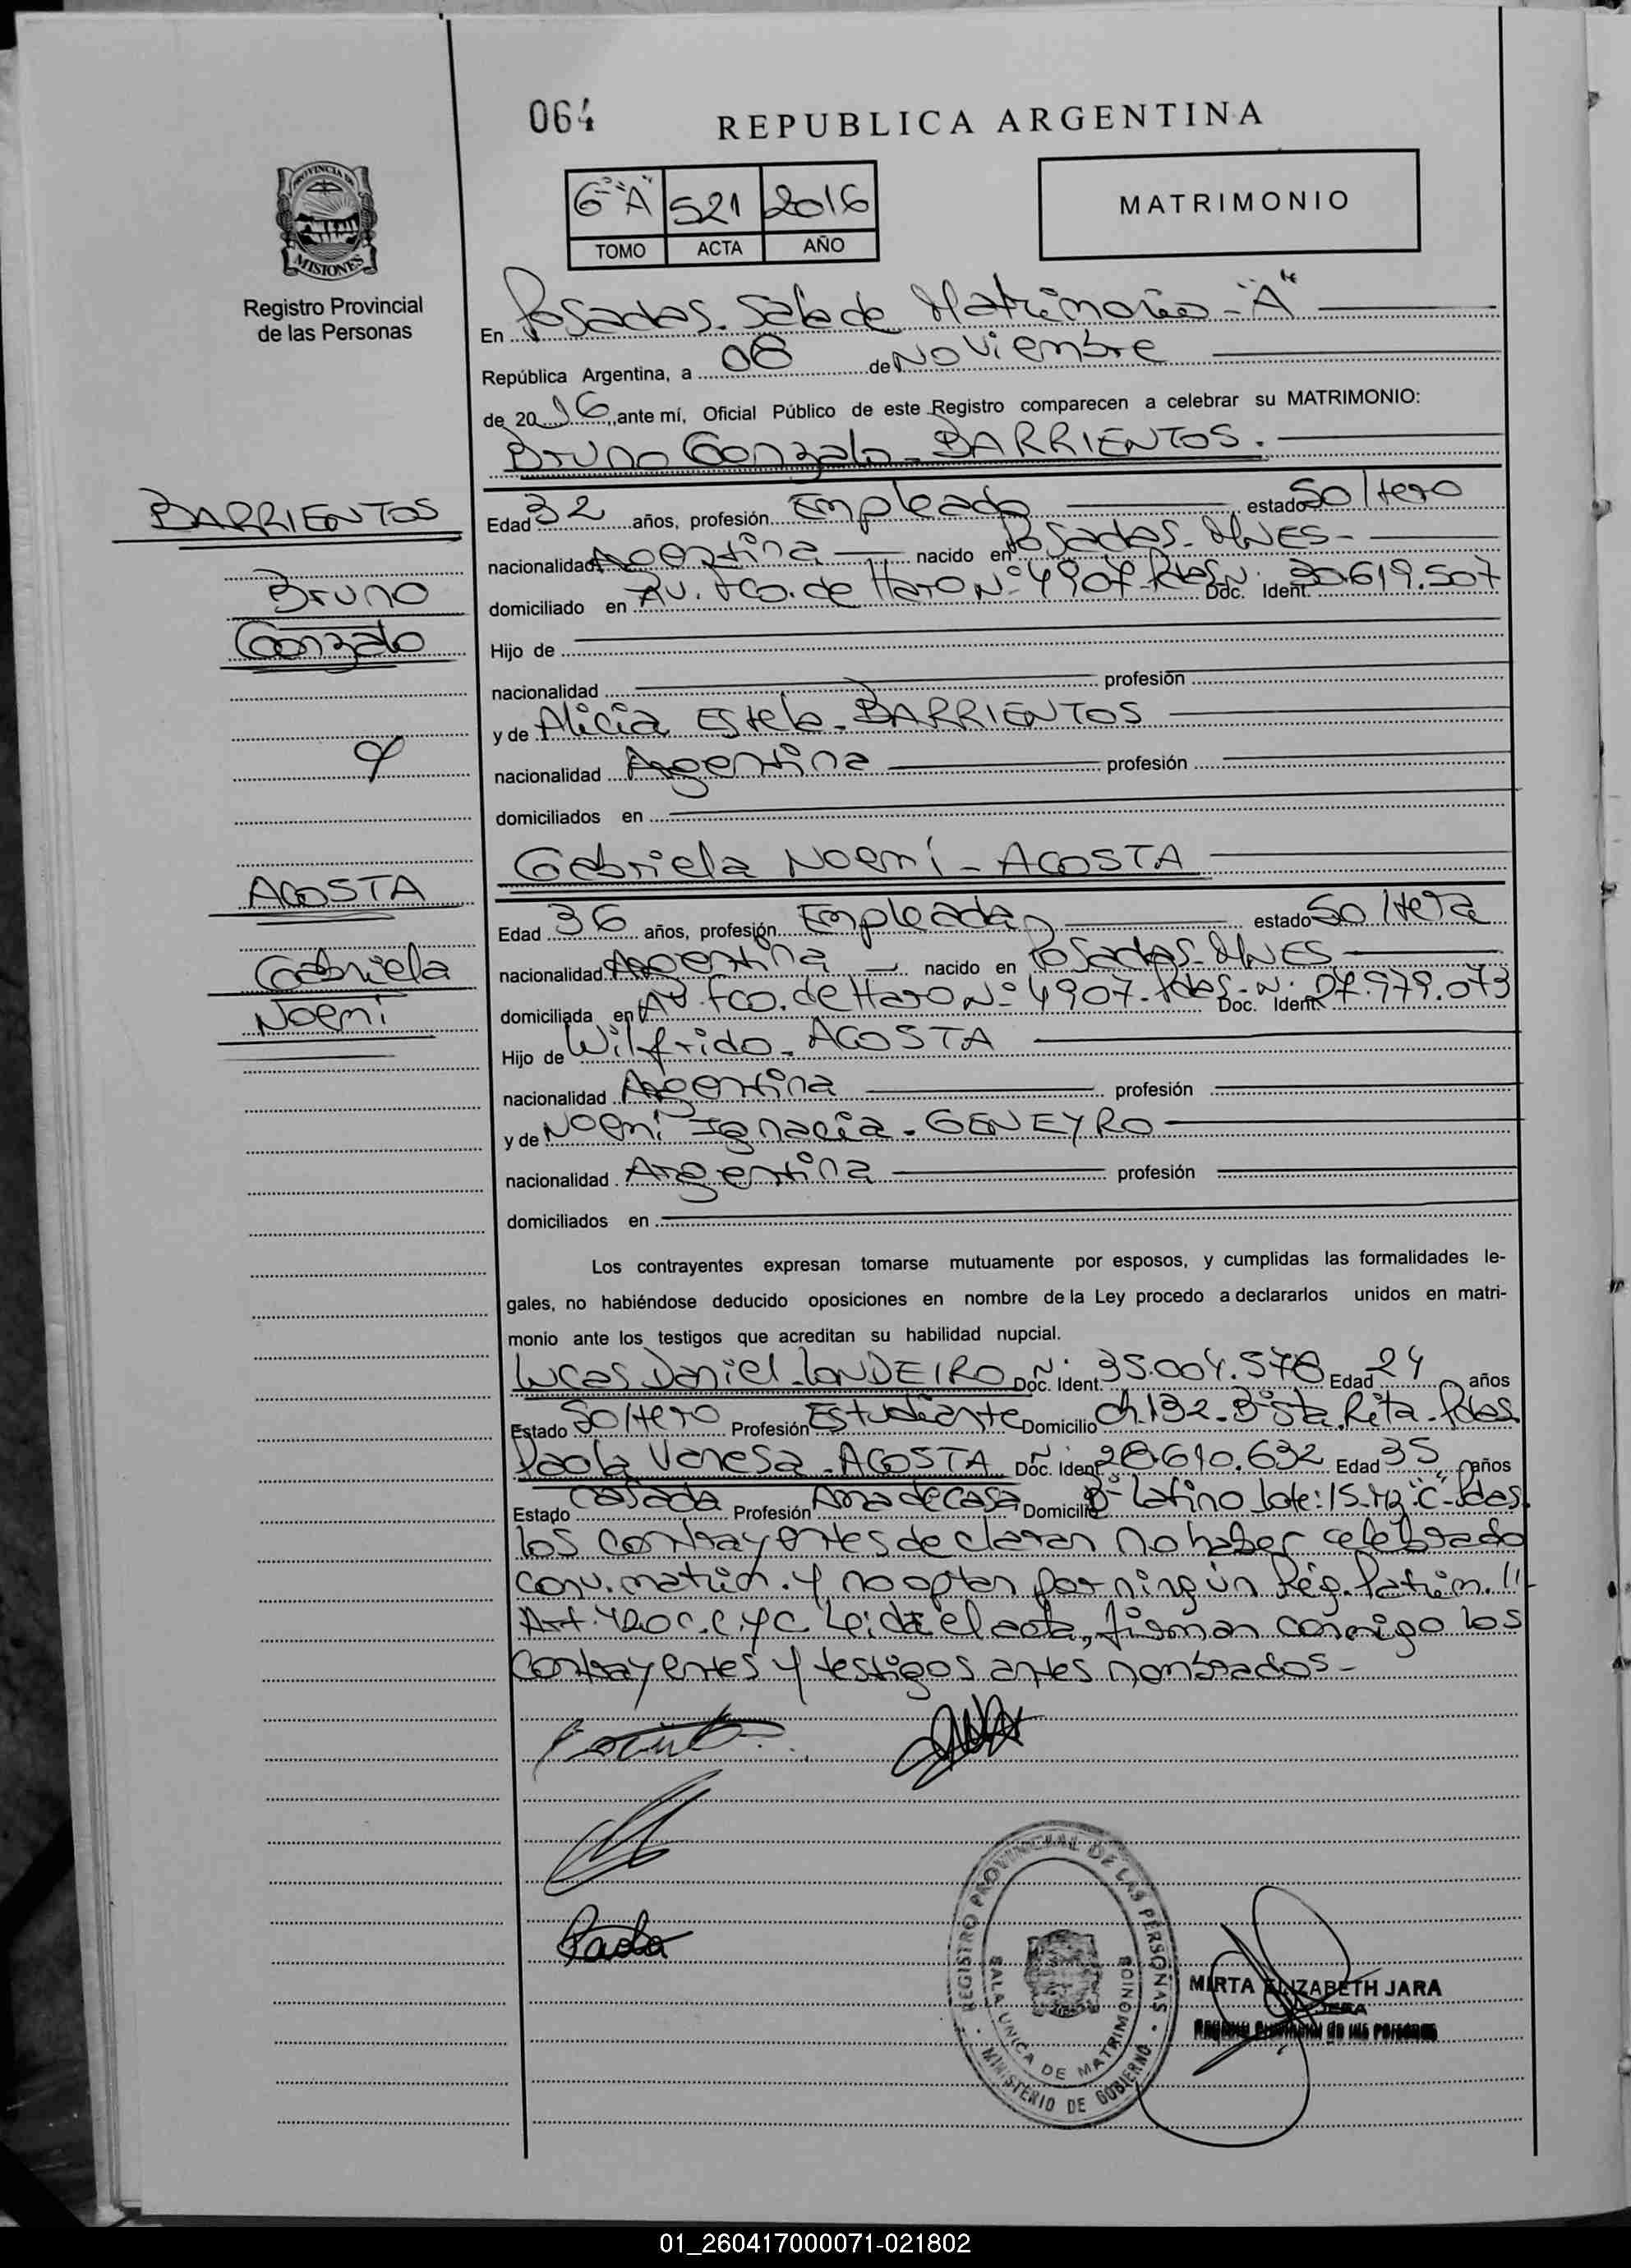 064
REPUBLICA ARGENTINA
PROVINCIA DE
MISIONES
Registro Provincial
de las Personas
6º "A" 521 2016
TOMO ACTA AÑO
MATRIMONIO
En Posadas. Sala de Matrimonio - "A"
República Argentina, a 08 de Noviembre
de 20 16, ante mí, Oficial Público de este Registro comparecen a celebrar su MATRIMONIO:
Bruno Gonzalo - BARRIENTOS.
BARRIENTOS
Bruno
Gonzalo
Edad 32 años, profesión Empleado estado Soltero
nacionalidad Argentina nacido en Posadas - MNES -
domiciliado en Av. Fco. de Haro Nº 4907 - Pdas Doc. Ident. Nº 30.619.507
Hijo de
nacionalidad profesión
y de Alicia Estela - BARRIENTOS
nacionalidad Argentina profesión
domiciliados en
y
ACOSTA
Gabriela
Noemí
Gabriela Noemí - ACOSTA
Edad 36 años, profesión Empleada estado Soltera
nacionalidad Argentina nacido en Posadas - MNES
domiciliada en Av. Fco. de Haro Nº 4907 - Pdas - Doc. Ident. Nº 27.979.073
Hijo de Wilfrido - ACOSTA
nacionalidad Argentina profesión
y de Noemí Ignacia - GENEYRO
nacionalidad Argentina profesión
domiciliados en
Los contrayentes expresan tomarse mutuamente por esposos, y cumplidas las formalidades le-
gales, no habiéndose deducido oposiciones en nombre de la Ley procedo a declararlos unidos en matri-
monio ante los testigos que acreditan su habilidad nupcial.
Lucas Daniel - LONDEIRO Doc. Ident. Nº 35.004.578 Edad 24 años
Estado Soltero Profesión Estudiante Domicilio Ch. 132 - Bº Sta. Rita - Pdas
Paola Vanesa - ACOSTA Doc. Ident. Nº 28.610.632 Edad 35 años
Estado Casada Profesión Ama de casa Domicilio Bº Latino Lote: 15 - Mz "C" - Pdas.
Los contrayentes declaran no haber celebrado
conv. matrim. y no optan por ningún Rég. Patrim.
Art. 420 C.C. y C. Leída el acta, firman conmigo los
contrayentes y testigos antes nombrados -
Paola
REGISTRO PROVINCIAL DE LAS PERSONAS
SALA UNICA DE MATRIMONIOS
MINISTERIO DE GOBIERNO
MIRTA ELIZABETH JARA
JEFA
Registro Provincial de las Personas
01_260417000071-021802